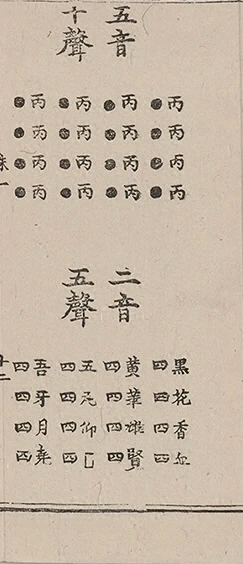 五音
十聲
丙丙丙丙
●●●●
丙丙丙丙
●●●●
丙丙丙丙
●●●●
丙丙丙丙
●●●●
二音
五聲
黑花香血
四四四四
黃華雄賢
四四四四
五瓦仰□
四四四四
吾牙月堯
四四四四